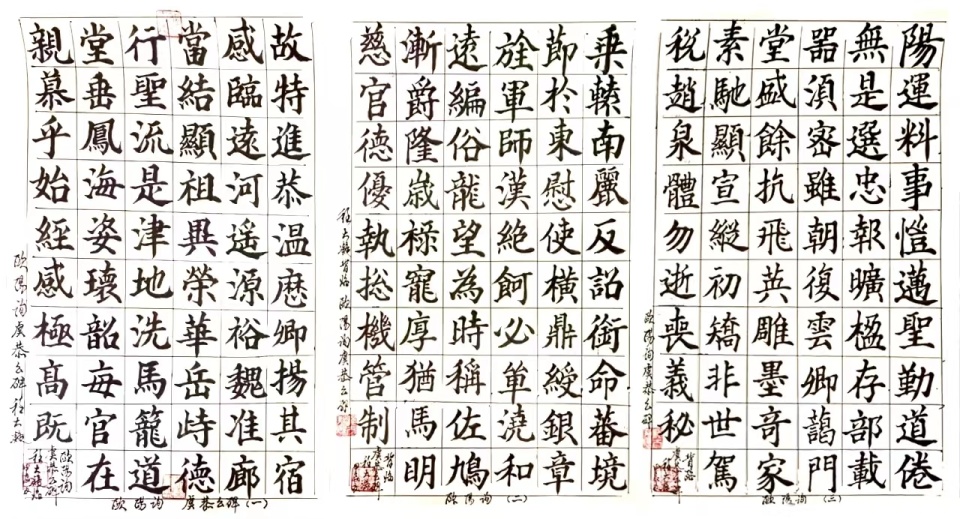 故特進恭温厯卿揚其宿
感臨遠河遥源裕魏准廊
當結顯祖異榮華岳峙德
行聖流是津地洗馬籠道
堂垂鳳海姿瓌韶每官在
親慕乎始經感極髙既
歐陽詢虞恭公碑
歐陽詢 虞恭公碑(一)
乗轅南麗反詔銜命蕃境
節於東慰使橫鼎綬銀章
旌軍師漢絶餉必単澆和
遠編俗龍望為時稱佐鳩
漸爵隆歳祿寵厚猶馬明
慈官德優執捴機管制
歐陽詢虞恭公碑
歐陽詢(二)
陽運料事愷邁聖勤道倦
無是選忠報曠楹存部載
噐湏密雖朝復雲卿藹門
堂盛餘抗飛英雕墨奇家
素馳顯宣縱初矯非世駕
税趙泉體勿逝喪義秘
歐陽詢虞恭公碑
歐陽詢(三)